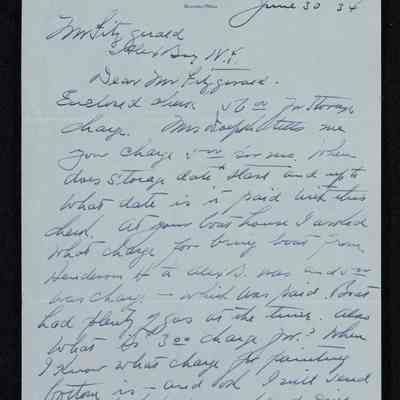 June 30 34
Mr Fitzgerald
Alex Bay N.Y.
Dear Mr Fitzgerald.
Enclosed check 56 00 for storage
charge. Mrs tells me
your charge 5 00 for me. When
does storage date start and up to
what date is it paid with this
check. At your boat house I asked
what charge for bring boat from
Henderson H to Alex B. was and 5 00
was charge — which was paid. Boat
had plenty of gas at the time. Also
What is 3 00 charge for? When
I know what charge for painting
bottom is — and ok I will send